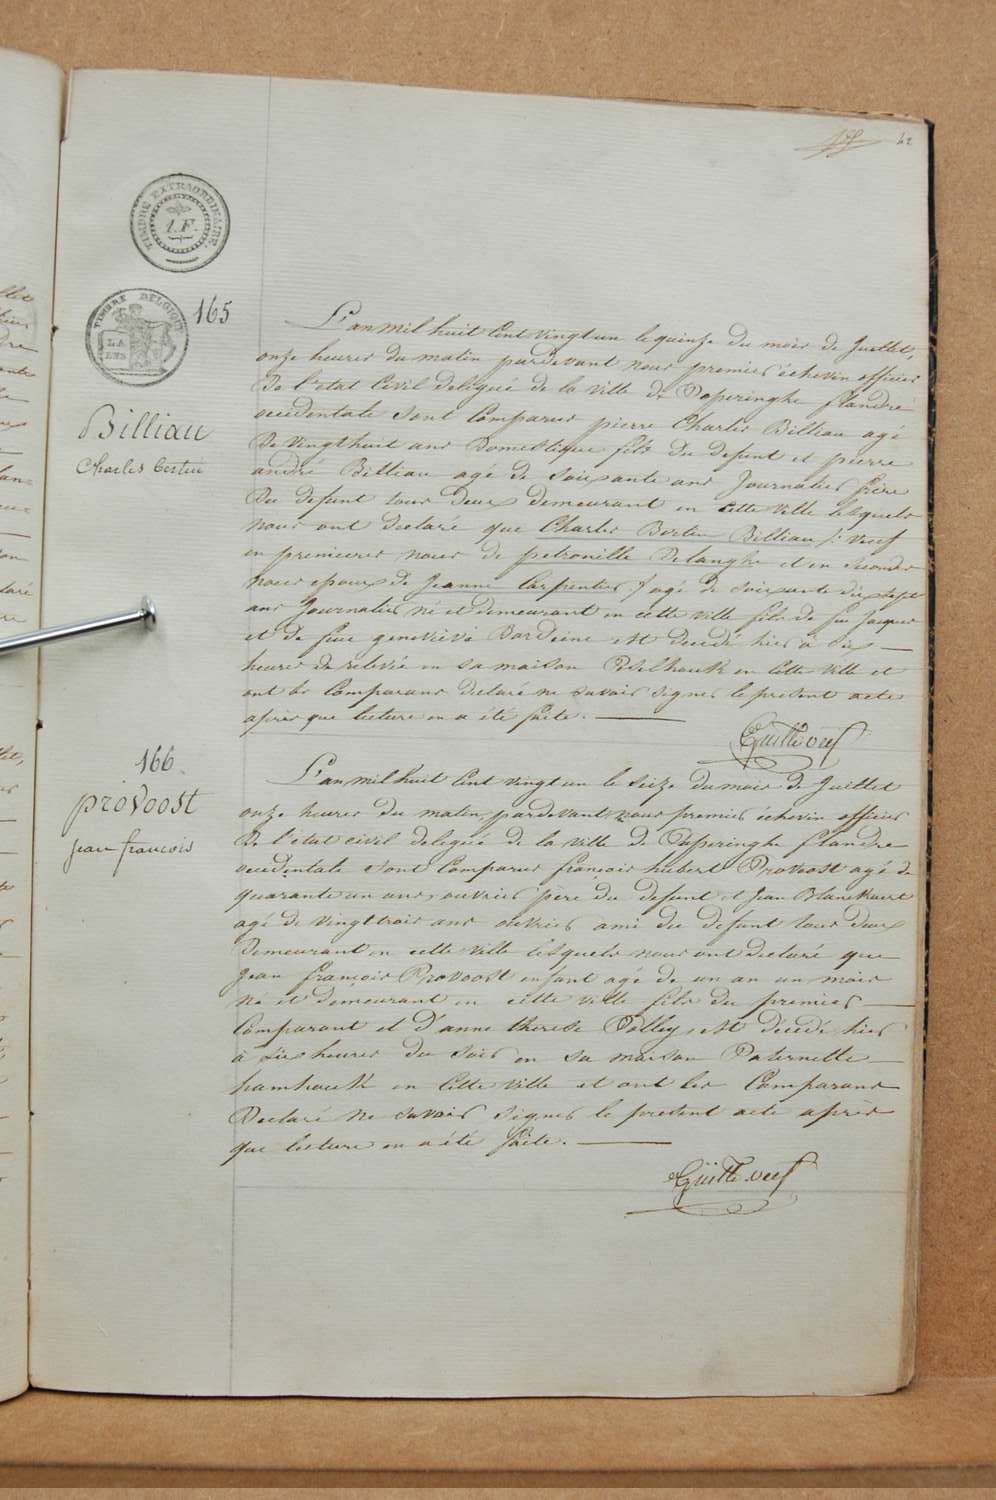 42
TIMBRE EXTRAORDINAIRE
1.F.
TIMBRE BELGIQUE
165
Billiau
Charles Bertin
L'an mil huit Cent vingt un le quinze du mois de Juillet,
onze heures du matin pardevant nous premier échevin officier
De l'etat Civil delegué de la ville de Poperinghe flandre
occidentale sont Comparus pierre Charles Billiau agé
De vingthuit ans Domestique fils du defunt et pierre
andré Billiau agé de Soixante ans Journalier frère
Du defunt tous Deux demeurant en cette ville lesquels
nous ont declaré que Charles Bertin Billiau / veuf
en premieres noces de petronille Delanghe et en secondes
noces epoux de Jeanne Carpentier / agé de soixante dix sept
ans Journalier né et demeurant en cette ville fils de feu Jacques
et de feue genevieve Bardeine est Decedé hier à six
heures de relevée en sa maison en Cette ville et
ont les Comparans declaré ne savoir signer le présent acte
après que lecture en a été faite.
166
provoost
jean francois
L'an mil huit Cent vingt un le seize du mois de Juillet
onze heures du matin pardevant nous premier échevin officier
De l'etat civil delegué de la ville de Poperinghe flandre
occidentale sont Comparus françois hubert Provoost agé de
quarante un ans, ouvrier père du defunt et Jean Blanckaert
agé de vingt trois ans ouvrier ami du defunt tous deux
Demeurant en cette ville lesquels nous ont declaré que
Jean françois Provoost enfant agé de un an un mois
né et demeurant en cette ville fils du premier
Comparant et d'anne therese Polley, est décédé hier
à dix heures du soir en sa maison Paternelle
hamhouck en Cette ville et ont les Comparans
Declaré ne savoir signer le present acte après
que lecture en a été faite.